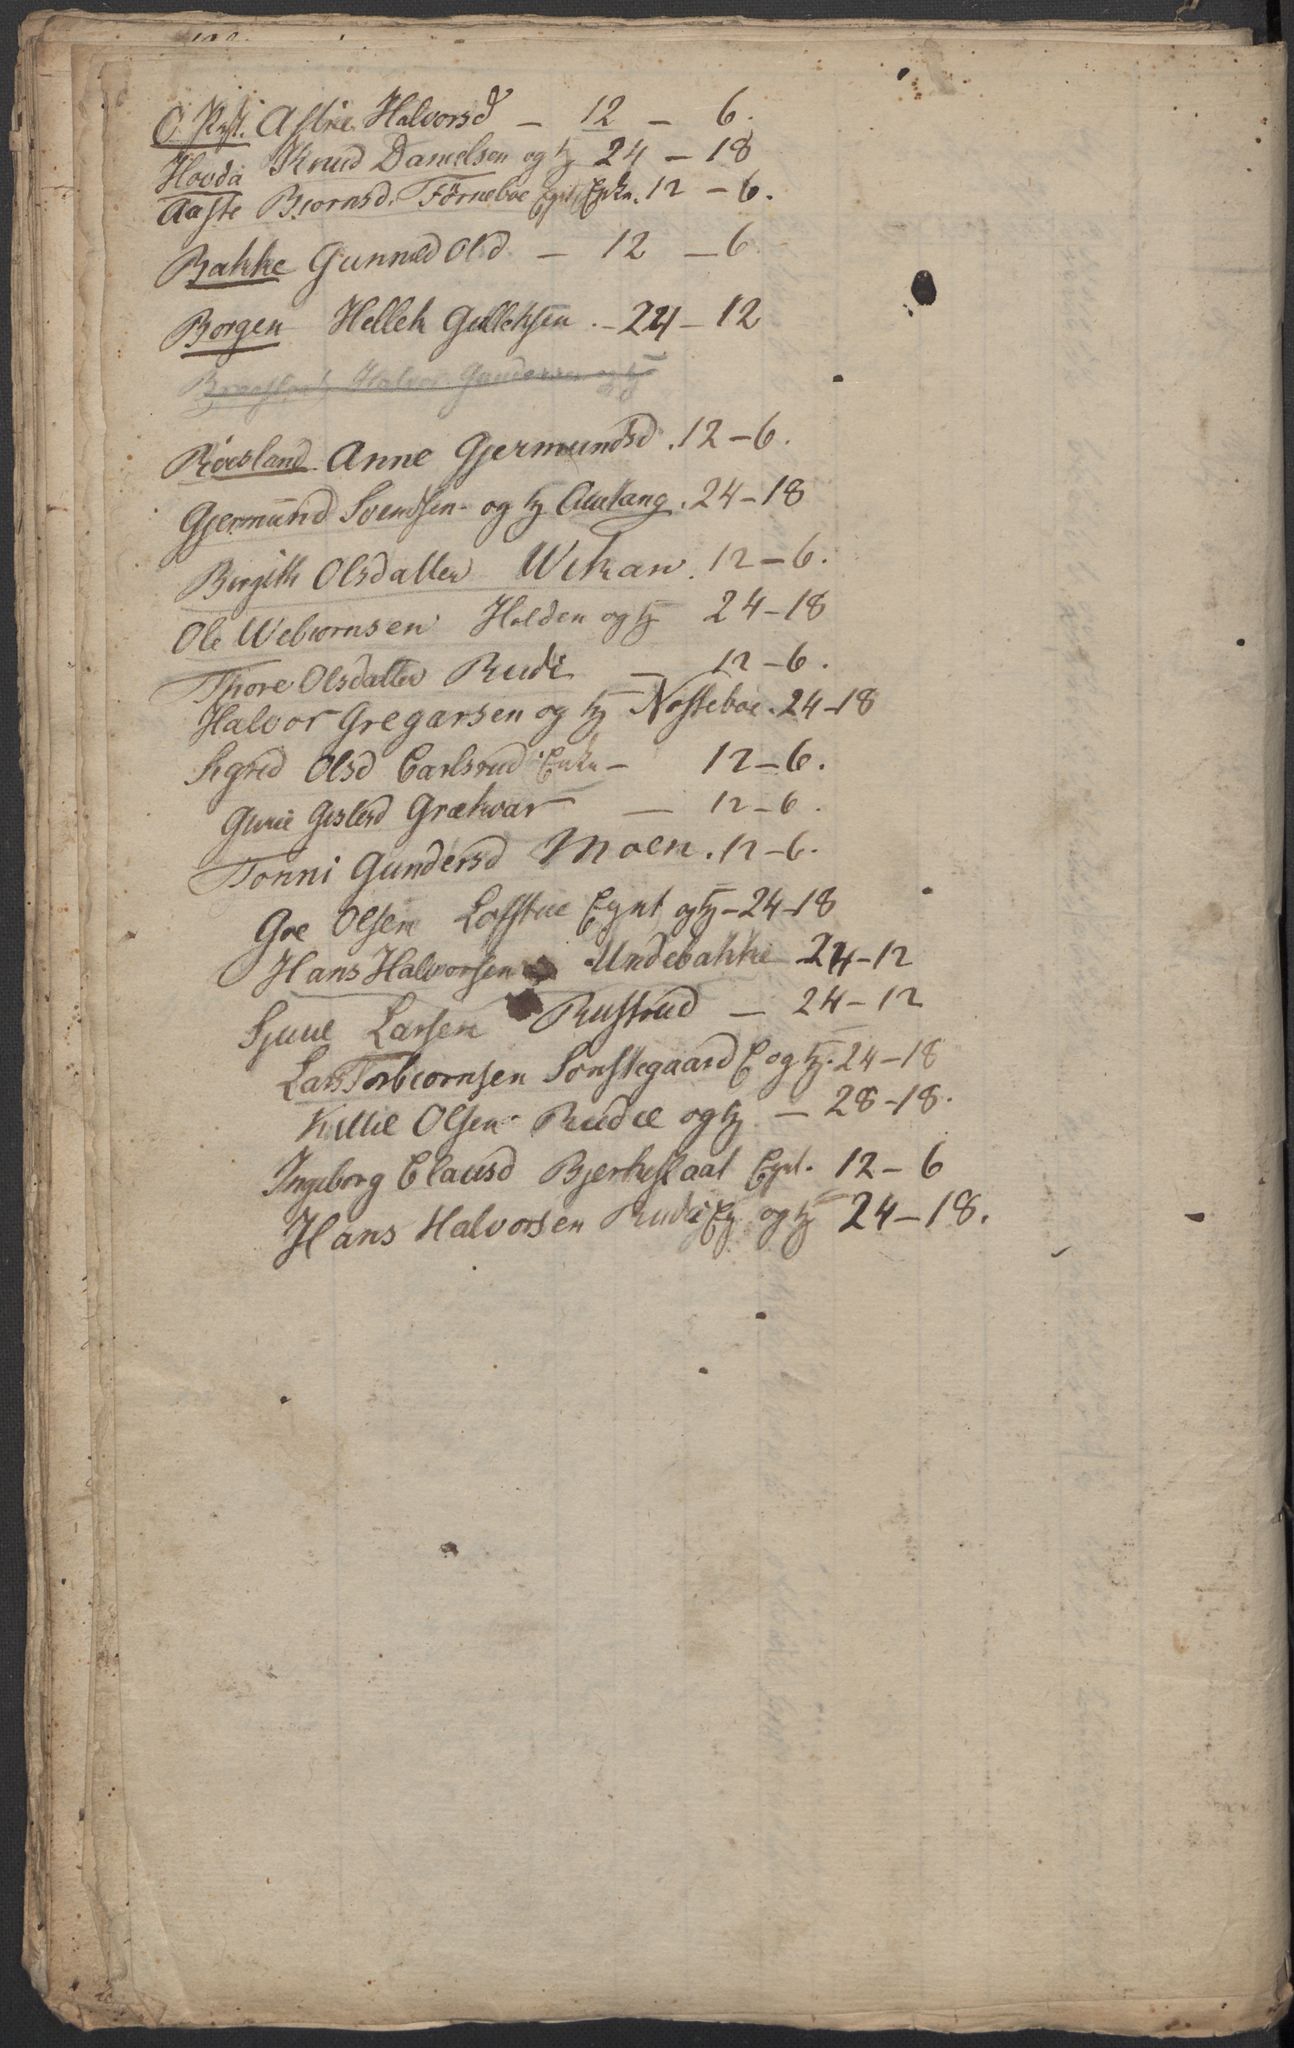 Astrie Halvorsd — 12 — 6.
Hovda Knud Danielsen og 24 — 18
Aaste Biornsd. Förneboe Enke. 12 — 6.
Bakke Gunned Olsd — 12 — 6
Borgen Hellek Gullichsen . — 24 — 12
Halvor Gundersen og
Röesland Anne Gjermundsd . 12 — 6.
Gjermund Svendsen og . 24 — 18
Birgith Olsdatter 12 — 6.
Ole Webiornsen Holden og 24 — 18
Thore Olsdatter Rudi — 12 — 6.
Halvor Gregarsen og Nosteboe . 24 — 18
Sigrid Olsd Carlsrud Enke — 12 — 6.
Gurie Gislesd Grækvar — 12 — 6.
Tonni Gundersd Moen . 12 — 6.
Gre Olsen Loftue og — 24 — 18
Hans Halvorsen Undebakke 24 — 12
Sjuul Larsen Rustrud — 24 — 12
Lars Torbiornsen Sonstegaard E og . 24 — 18
Kittil Olsen Rudie og — 28 — 18.
Ingeborg Clausd Bjerkeflaat 12 — 6
Hans Halvorsen Rudi og 24 — 18.